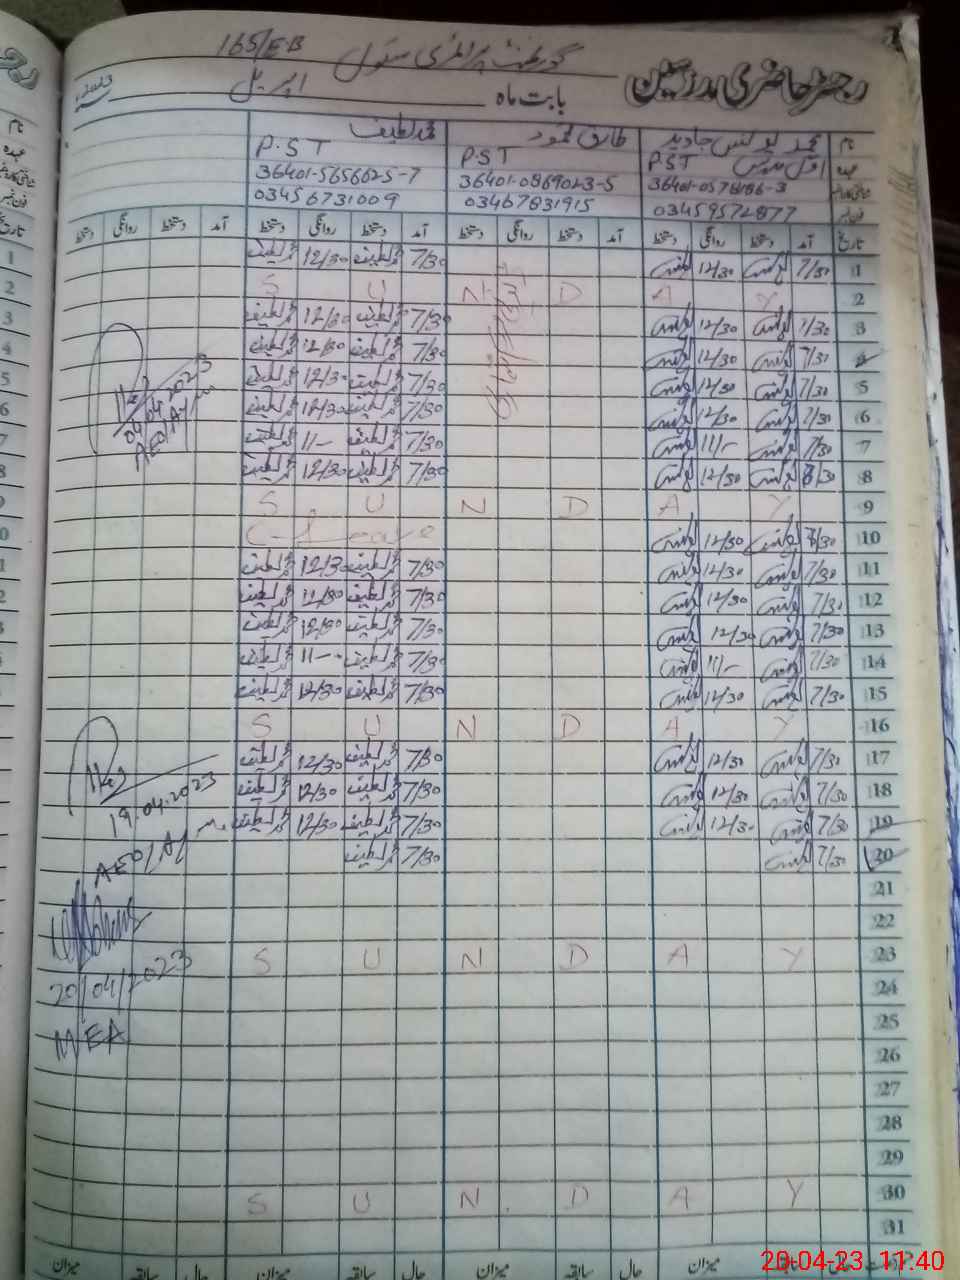 گورنمنٹ پرائمری سکول 165/EB
رجسٹر حاضری مدرسین
بابت ماہ اپریل 2023ء
نام محمد یونس جاوید طارق محمود محمد لطیف
عہدہ اول مدرس PST P.ST P.ST
36401-0578186-3 36401-0869023-5 36401-5656625-7
فون نمبر 03459572877 03467831915 03456731009
تاریخ آمد دستخط روانگی دستخط آمد دستخط روانگی دستخط آمد دستخط روانگی دستخط آمد دستخط روانگی دستخط
1 7/30 یونس 12/30 یونس 7/30 محمد لطیف 12/30 محمد لطیف
2 S U N D A Y
3 7/30 یونس 12/30 یونس 7/30 محمد لطیف 12/30 محمد لطیف
4 7/30 یونس 12/30 یونس 7/30 محمد لطیف 12/30 محمد لطیف
5 7/30 یونس 12/30 یونس 7/30 محمد لطیف 12/30 محمد لطیف
6 7/30 یونس 12/30 یونس 7/30 محمد لطیف 12/30 محمد لطیف
7 7/30 یونس 11/- یونس 7/30 محمد لطیف 11/- محمد لطیف
8 7/30 یونس 12/30 یونس 7/30 محمد لطیف 12/30 محمد لطیف
9 S U N D A Y
10 7/30 یونس 12/30 یونس C-Leave
11 7/30 یونس 12/30 یونس 7/30 محمد لطیف 12/30 محمد لطیف
12 7/30 یونس 12/30 یونس 7/30 محمد لطیف 12/30 محمد لطیف
13 7/30 یونس 12/30 یونس 7/30 محمد لطیف 12/30 محمد لطیف
14 7/30 یونس 11/- یونس 7/30 محمد لطیف 11/- محمد لطیف
15 7/30 یونس 12/30 یونس 7/30 محمد لطیف 12/30 محمد لطیف
16 S U N D A Y
17 7/30 یونس 12/30 یونس 7/30 محمد لطیف 12/30 محمد لطیف
18 7/30 یونس 12/30 یونس 7/30 محمد لطیف 12/30 محمد لطیف
19 7/30 یونس 12/30 یونس 7/30 محمد لطیف 12/30 محمد لطیف
20 7/30 یونس 7/30 محمد لطیف
21
22
23 S U N D A Y
24
25
26
27
28
29
30 S U N D A Y
31
04/04.2023
19.04.2023
20/04/2023
MEA
حال سابقہ میزان حال سابقہ میزان حال سابقہ میزان
20-04-23 11:40